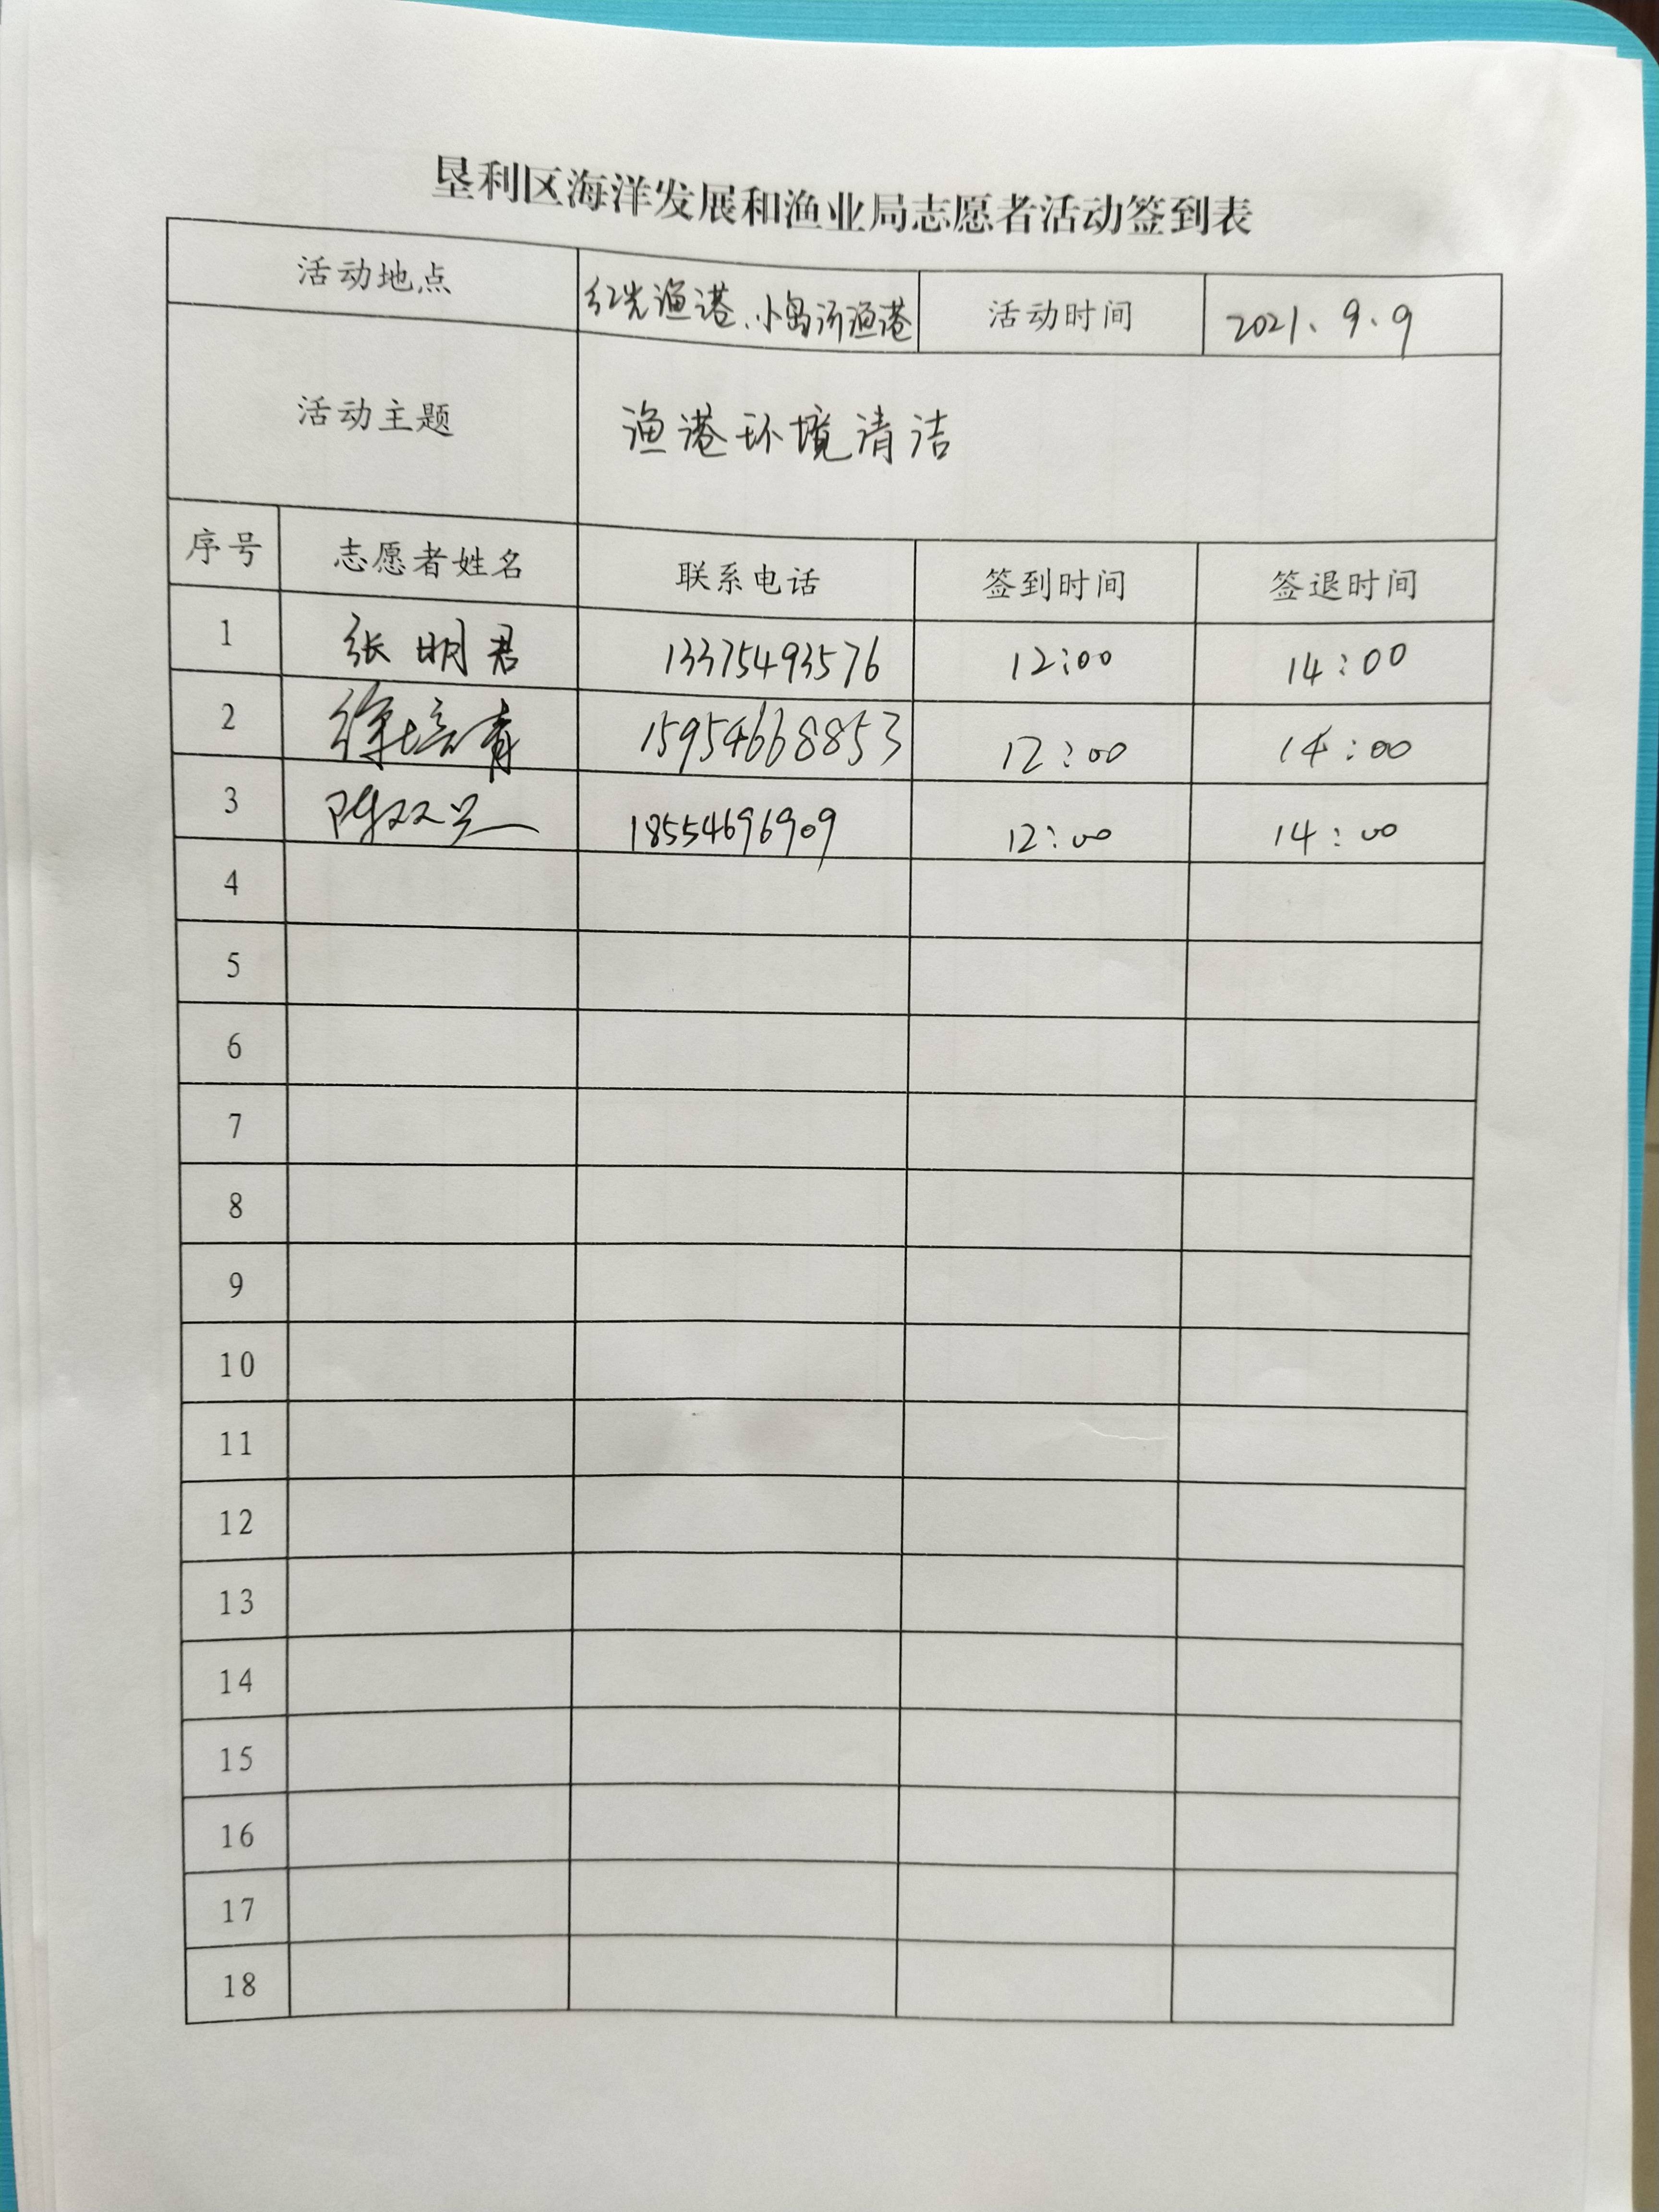 垦利区海洋发展和渔业局志愿者活动签到表
活动地点 红光渔港、小岛河渔港 活动时间 2021、9、9
活动主题 渔港环境清洁
序号 志愿者姓名 联系电话 签到时间 签退时间
1 张明君 13375493576 12:00 14:00
2 徐培青 15954668853 12:00 14:00
3 18554696909 12:00 14:00
4
5
6
7
8
9
10
11
12
13
14
15
16
17
18